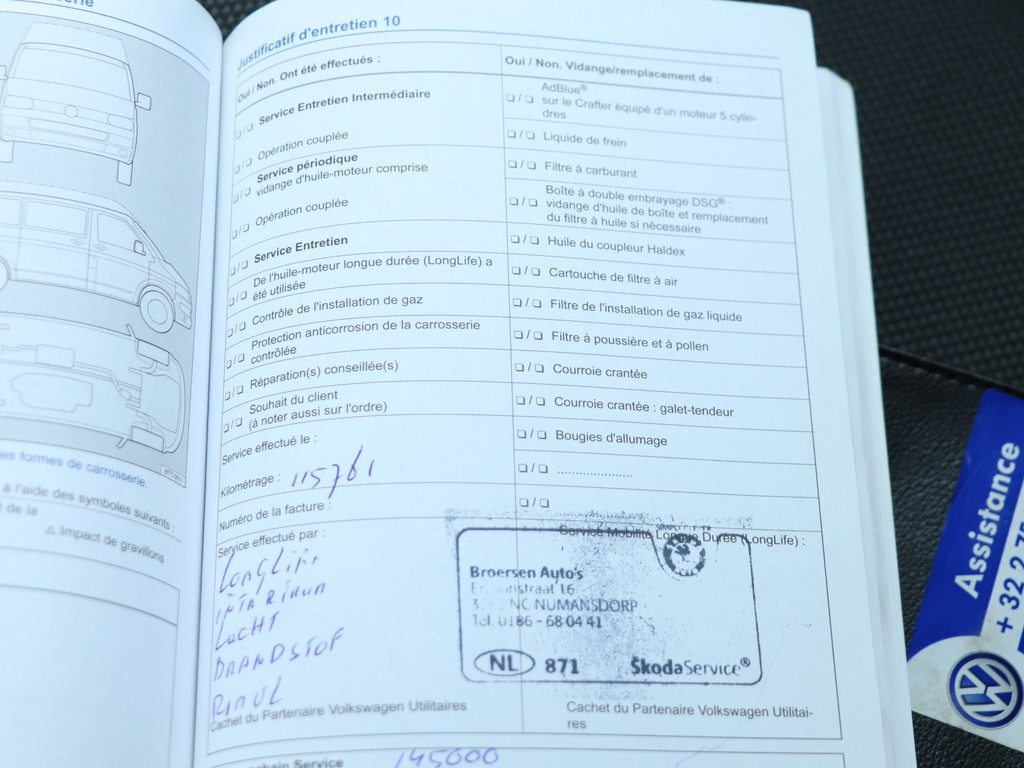 Justificatif d'entretien 10
Oui / Non. Ont été effectués :
Service Entretien Intermédiaire
Opération couplée
Service périodique
vidange d'huile-moteur comprise
Opération couplée
Service Entretien
De l'huile-moteur longue durée (LongLife) a
été utilisée
Contrôle de l'installation de gaz
Protection anticorrosion de la carrosserie
contrôlée
Réparation(s) conseillée(s)
Souhait du client
(à noter aussi sur l'ordre)
Service effectué le :
Kilométrage : 115761
Numéro de la facture :
Service effectué par :
LUCHT
BRANDSTOF
Cachet du Partenaire Volkswagen Utilitaires
Oui / Non. Vidange/remplacement de :
AdBlue®
sur le Crafter équipé d'un moteur 5 cylin-
dres
Liquide de frein
Filtre à carburant
Boîte à double embrayage DSG® :
vidange d'huile de boîte et remplacement
du filtre à huile si nécessaire
Huile du coupleur Haldex
Cartouche de filtre à air
Filtre de l'installation de gaz liquide
Filtre à poussière et à pollen
Courroie crantée
Courroie crantée : galet-tendeur
Bougies d'allumage
Service Mobilité Longue Durée (LongLife) :
Broersen Auto's
16
NC NUMANSDORP
Tel. 0186 - 68 04 41
NL 871 ŠkodaService®
Cachet du Partenaire Volkswagen Utilitai-
res
Service 145000
formes de carrosserie.
à l'aide des symboles suivants :
de la
Impact de gravillons
Assistance
+ 32 2